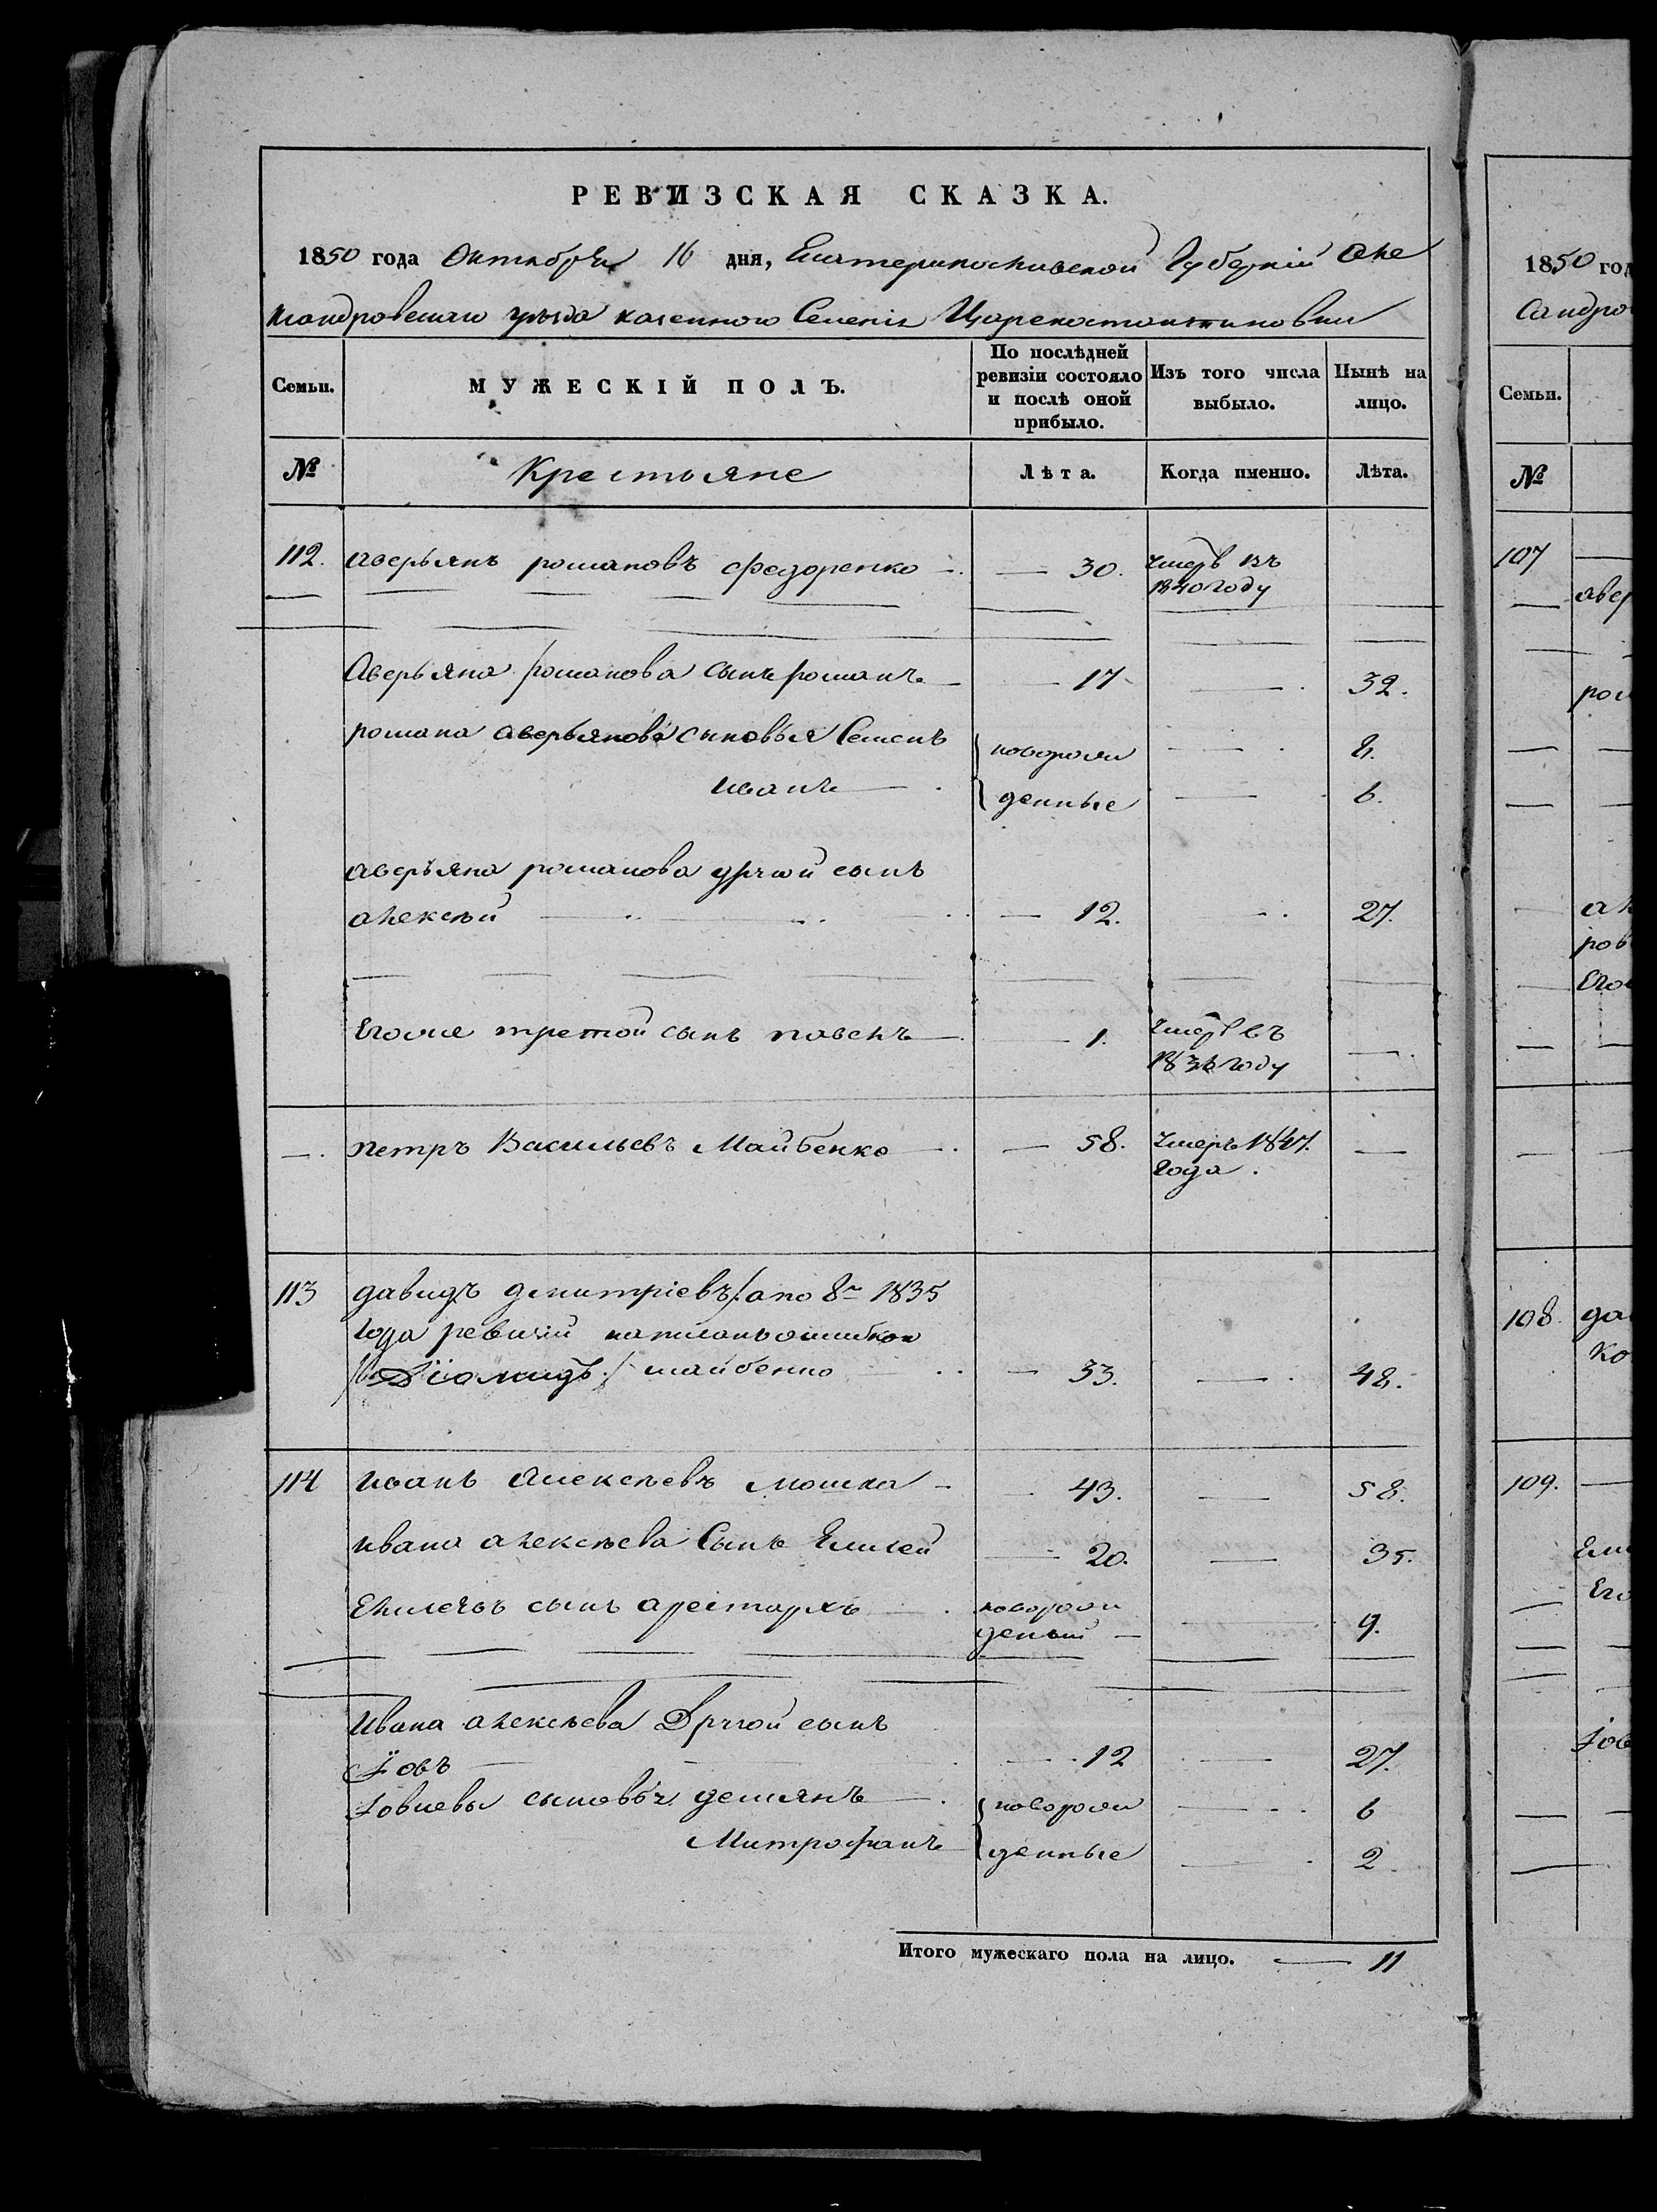 РЕВИЗСКАЯ СКАЗКА.
1850 года Октября 16 дня, Екатеринославской Губерніи Але
ксандровскаго уѣзда казенного Селенія Цареконстантиновки
Семьи. МУЖЕСКІЙ ПОЛЪ. По послѣдней ревизіи состояло и послѣ оной прибыло. Изъ того числа выбыло. Нынѣ на лицо.
№ Крестьяне Лѣта. Когда именно. Лѣта.
112. аверьянъ романовъ федоренко — 30. умеръ въ
1840 году
Аверьяна романова сынъ романъ — 17 — 32.
романа аверьянова сыновья Семенъ новорож — 8.
иванъ денные — 6.
аверьяна романова другой сынъ
алексѣй — 12. 27.
Егоже третой сынъ павелъ — 1. умеръ въ
183 году —
—. петръ Васильевъ Майбенко — 58. умеръ 1847. —
года.
113 давидъ дмитріевъ /:а по 8й 1835
года ревизіи написанъ ошибкою
Діомидъ:/ майбенко — 33. — 48.
114 иванъ Алексѣевъ мошка — 43. — 58.
ивана алексѣева Сынъ Елисей — 20. — 35.
Елисеевъ сынъ арестархъ новорож
денный — 9.
Ивана алексѣева Другой сынъ
Іовъ — 12 — 27.
Іовиевы сыновья демянъ новорож — 6
Митрофанъ денные — 2
Итого мужескаго пола на лицо. — 11
1850 год
Сандро
Семьи.
№
107 —
авер
ром
ал
ров
Его
108. да
ко
109. —
Ели
Его
Іов